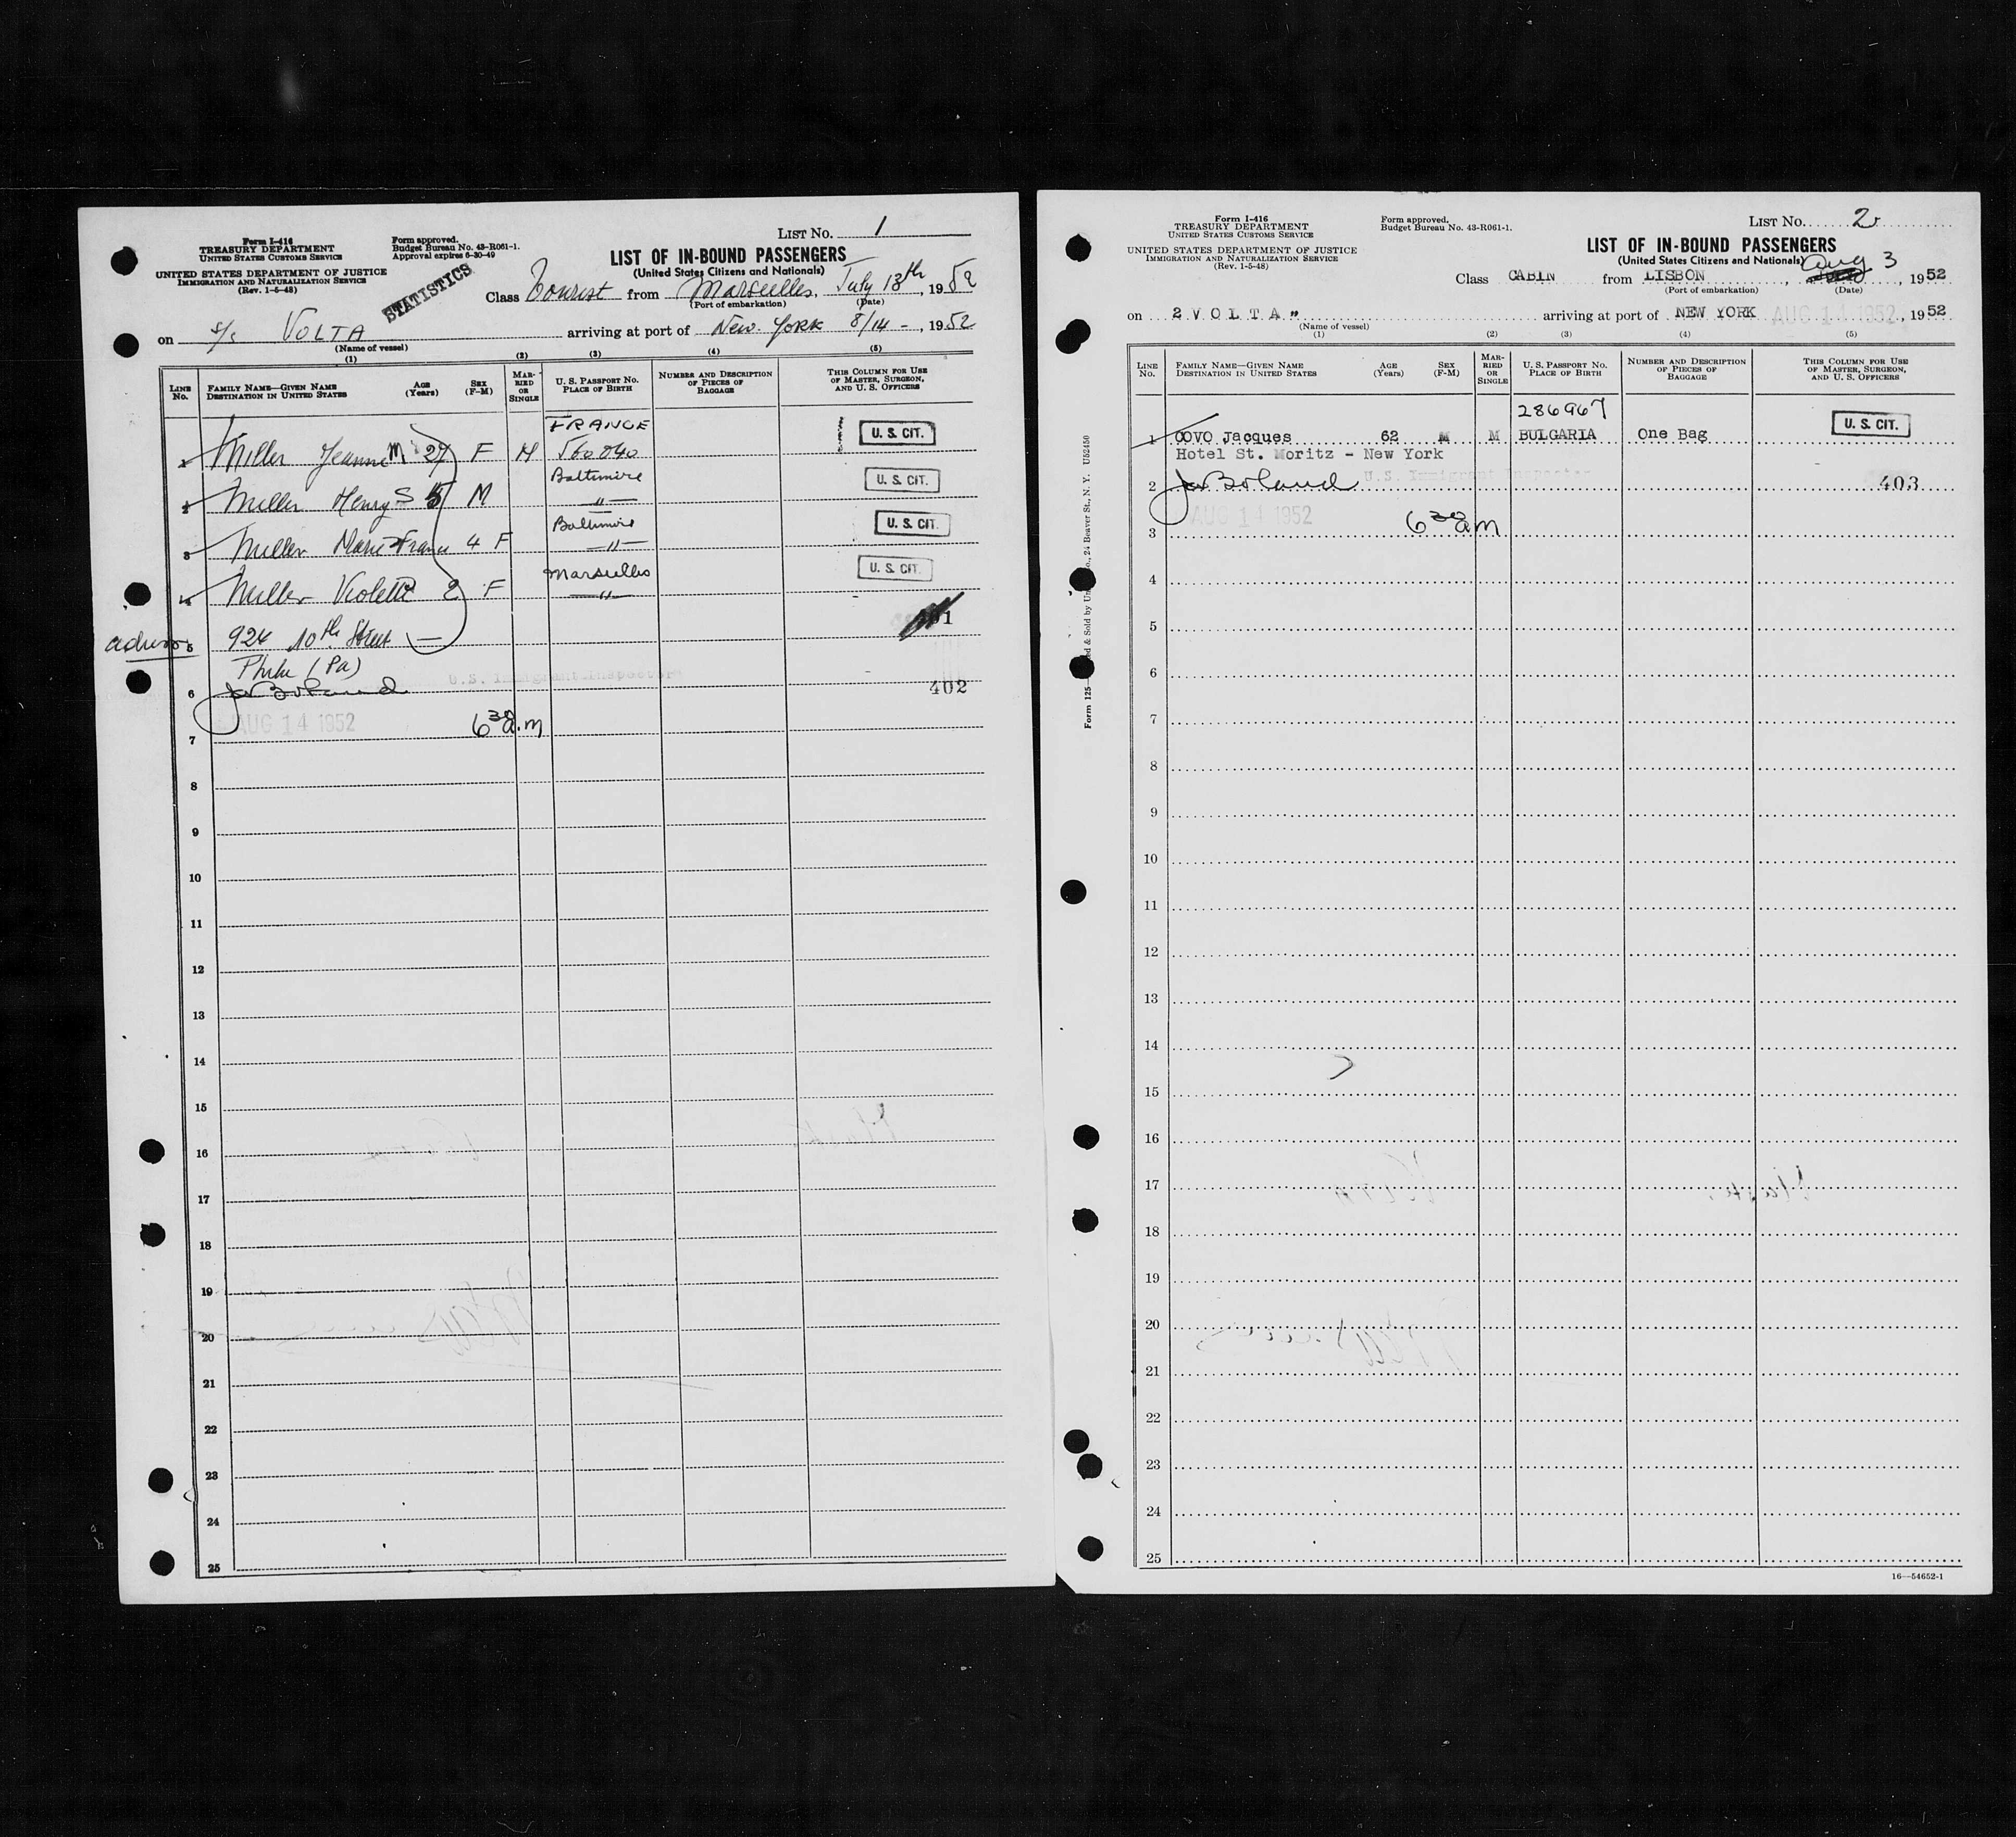 LIST No. 1
Form I-416
TREASURY DEPARTMENT
UNITED STATES CUSTOMS SERVICE
Form approved.
Budget Bureau No. 43-R061-1.
Approval expires 6-30-49
UNITED STATES DEPARTMENT OF JUSTICE
IMMIGRATION AND NATURALIZATION SERVICE
(Rev. 1-5-48)
STATISTICS
LIST OF IN-BOUND PASSENGERS
(United States Citizens and Nationals)
Class Tourist from Marseilles, July 18th, 1952
(Port of embarkation) (Date)
on s/s VOLTA arriving at port of New-York 8/14-, 1952
(Name of vessel)
(1) (2) (3) (4) (5)
LINE No. FAMILY NAME—GIVEN NAME DESTINATION IN UNITED STATES AGE (Years) SEX (F-M) MARRIED OR SINGLE U. S. PASSPORT NO. PLACE OF BIRTH NUMBER AND DESCRIPTION OF PIECES OF BAGGAGE THIS COLUMN FOR USE OF MASTER, SURGEON, AND U. S. OFFICERS
FRANCE
1 Miller Jeanne M 27 F M 560040 U. S. CIT.
Baltimore
2 Miller Henry S 5 M —"— U. S. CIT.
Baltimore
3 Miller Marie France 4 F —"— U. S. CIT.
Marseilles
4 Miller Violette 2 F —"— U. S. CIT.
5 924 10th Street —
Phila (Pa)
6 JW Boland U.S. Immigrant Inspector 402
AUG 14 1952 6 30 a.m
7
8
9
10
11
12
13
14
15
16
17
18
19
20
21
22
23
24
25
Form I-416
TREASURY DEPARTMENT
UNITED STATES CUSTOMS SERVICE
UNITED STATES DEPARTMENT OF JUSTICE
IMMIGRATION AND NATURALIZATION SERVICE
(Rev. 1-5-48)
Form approved.
Budget Bureau No. 43-R061-1.
LIST No. 2
LIST OF IN-BOUND PASSENGERS
(United States Citizens and Nationals)
Class CABIN from LISBON, Aug 3, 1952
(Port of embarkation) (Date)
on 2 V O L T A " arriving at port of NEW YORK AUG 14 1952, 1952
(Name of vessel)
(1) (2) (3) (4) (5)
LINE No. FAMILY NAME—GIVEN NAME DESTINATION IN UNITED STATES AGE (Years) SEX (F-M) MARRIED OR SINGLE U. S. PASSPORT NO. PLACE OF BIRTH NUMBER AND DESCRIPTION OF PIECES OF BAGGAGE THIS COLUMN FOR USE OF MASTER, SURGEON, AND U. S. OFFICERS
286967
1 COVO Jacques 62 M M BULGARIA One Bag U. S. CIT.
Hotel St. Moritz - New York
2 JW Boland U.S. Immigrant Inspector 403
AUG 14 1952 6 30 am
3
4
5
6
7
8
9
10
11
12
13
14
15
16
17
18
19
20
21
22
23
24
25
16—54652-1